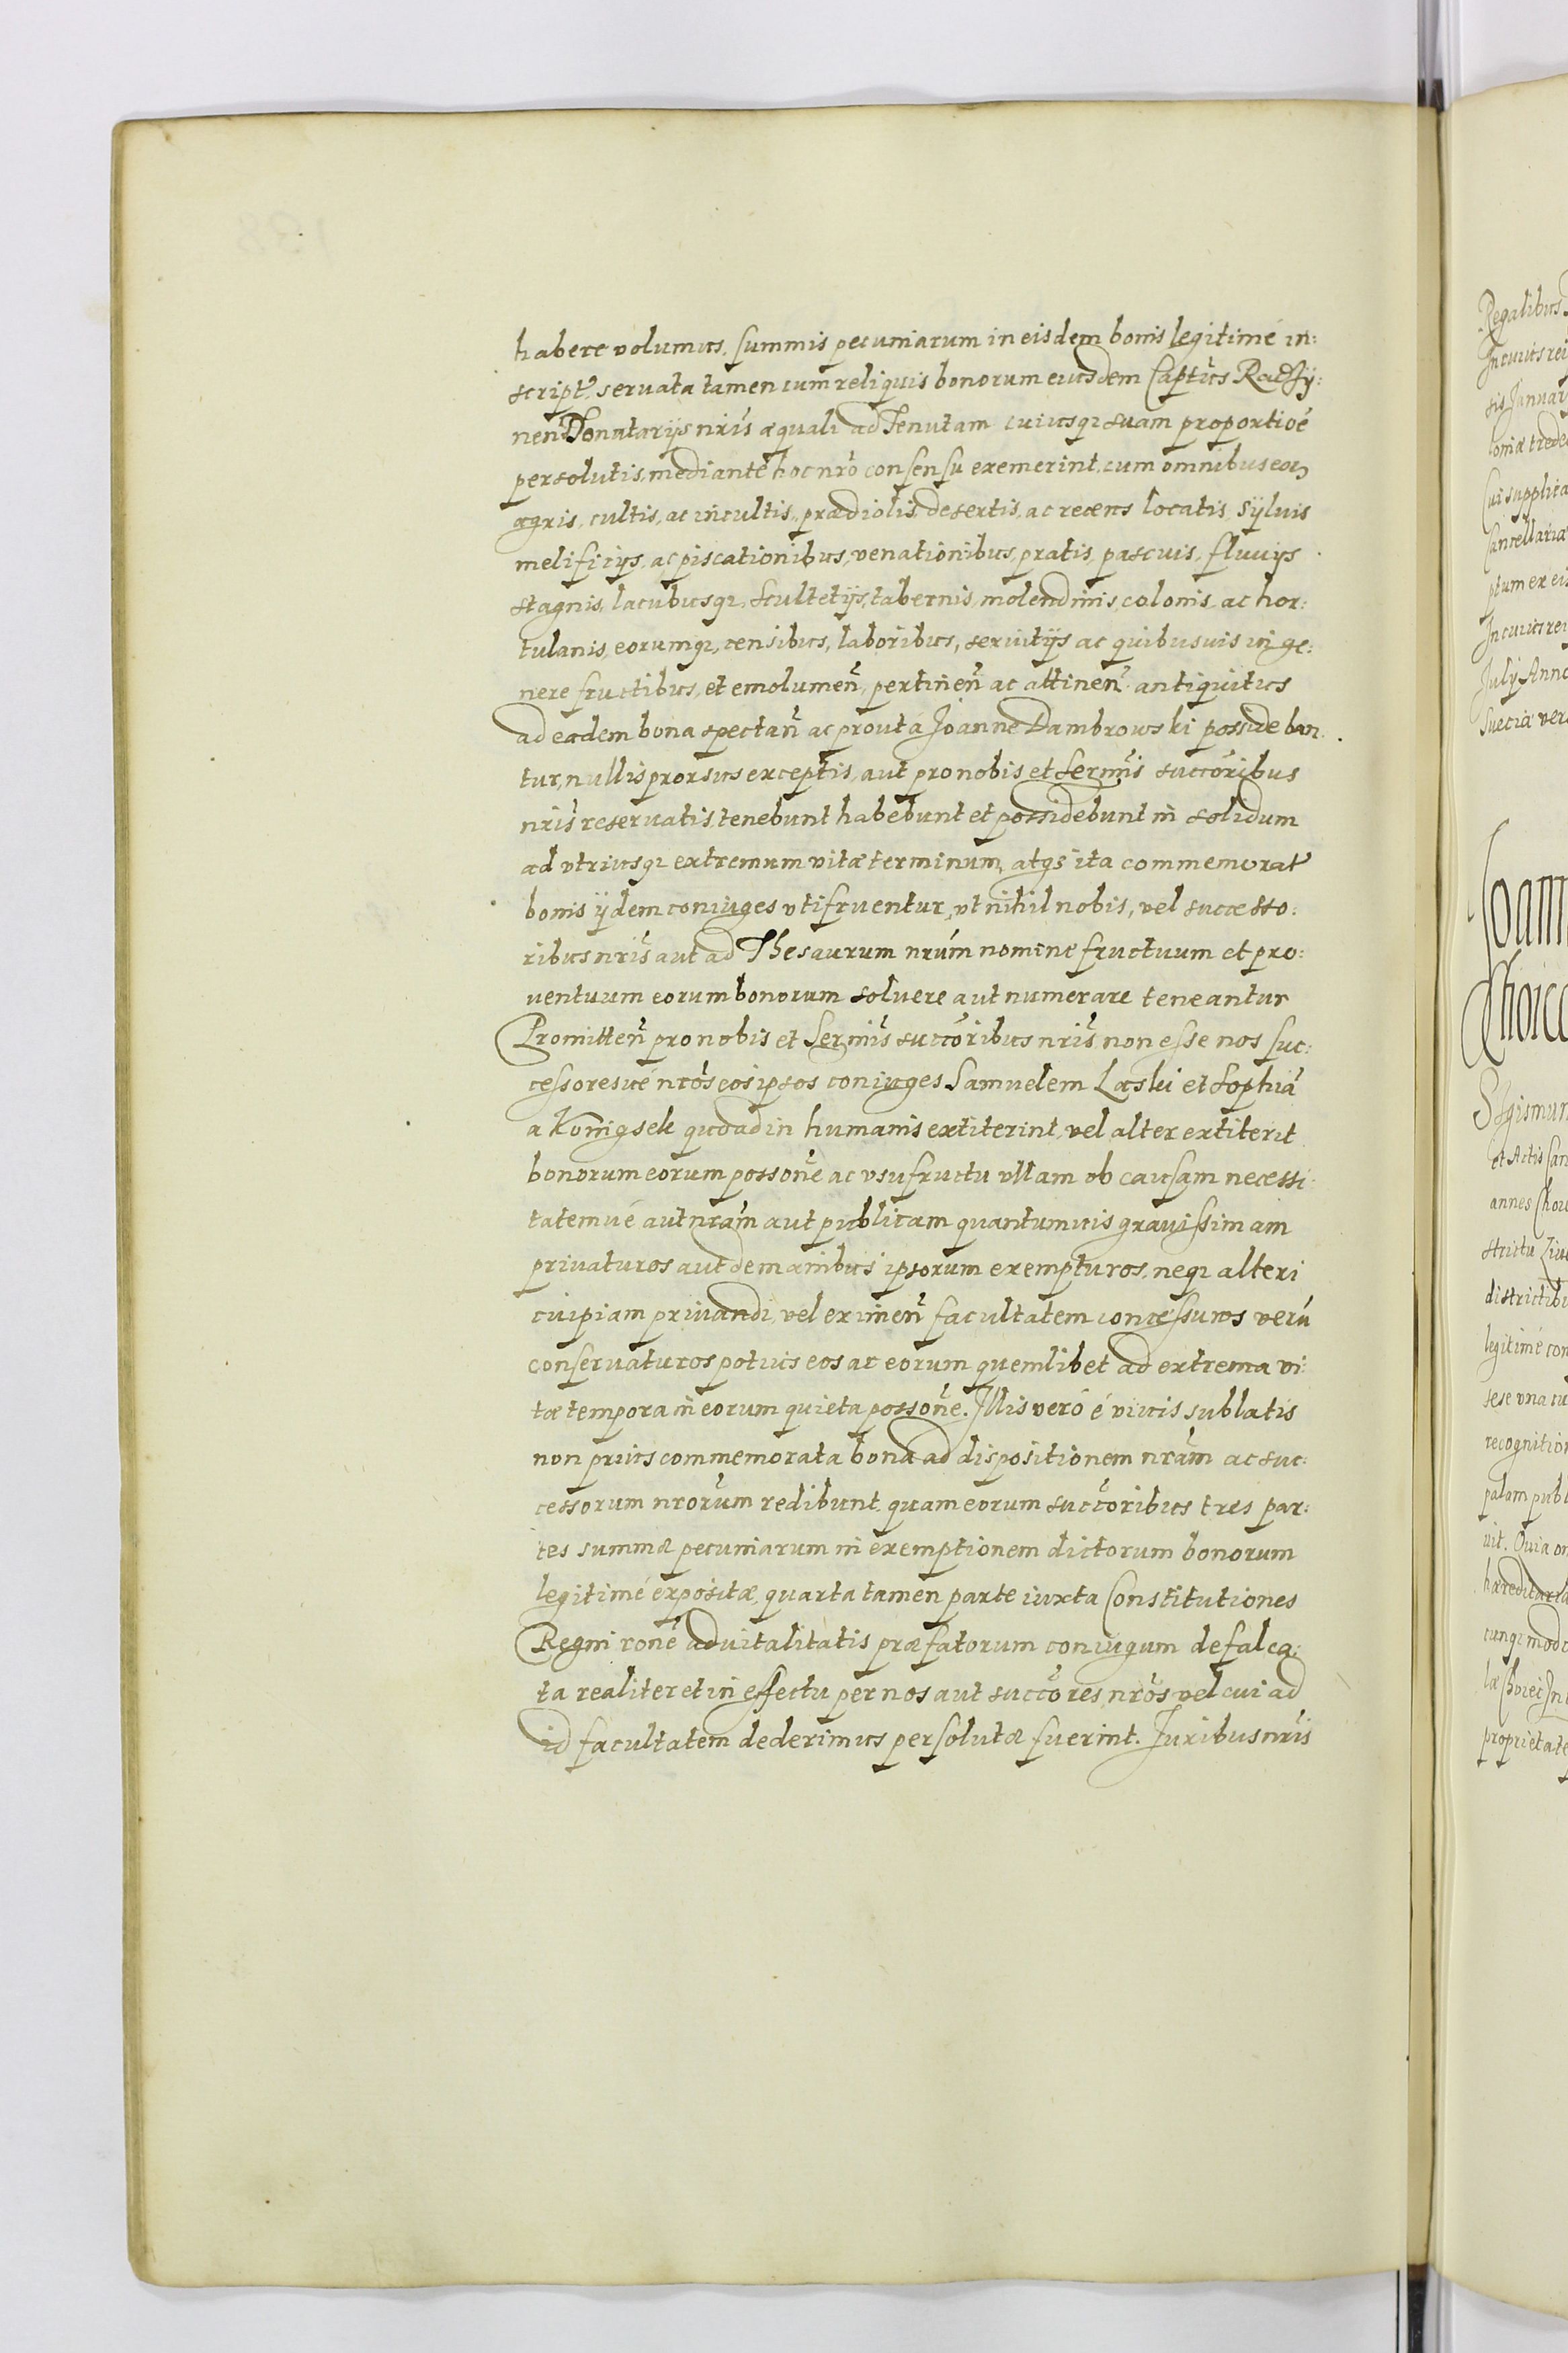 habere volumus. summis pecuniarum in eisdem bonis legitimé in:
script: servata tamen cum reliquis bonorum eiusdem Captūs Radzÿ:
neñ Donatarijs nrīs æquali ad Tenutam cuiusqȝ suam proportioē
persolutis, mediante hoc nrō consensu exemerint. cum omnibus eoꝝ
agris, cultis, ac incultis, prædiolis desertis, ac recens locatis, sÿluis
melificijs, ac piscationibus, venationibus, pratis, pascuis, fluuijs
stagnis, lacubusqȝ, scultetijs, tabernis, molendinis, colonis, ac hor:
tulanis, eorumqȝ, censibus, laboribus, seruitijs ac quibusuis in ge:
nere fructibus, et emolumeñ, pertineñ ac attineñ. antiquitus
ad eadem bona spectañ ac prout a Joanne Dambrowski posside ban.
tur, nullis prorsus exceptis, aut pro nobis et sermīs succōribus
nrīs reseruatis, tenebunt habebunt et possidebunt in solidum
ad vtriusqȝ extremum vitæ terminum, atqȝ ita commemorat:
bonis ijdem coniuges vti fruentur, vt nihil nobis, vel successo:
ribus nrīs aut ad Thesaurum nrūm nomine fructuum et pro:
uentuum eorum bonorum soluere aut numerare teneantur
Promitteñ pro nobis et Sermīs succōribus nrīs, non esse nos suc:
cessoresué nrōs eos ipsos coniuges Samuelem Laski et Sophiā
a Konigsek quoad in humanis extiterint, vel alter extiterit
bonorum eorum possōne ac vsufructu vllam ob causam necessi:
tatemué aut nrām aut publicam quantumuis grauissimam
priuaturos aut de manibus ipsorum exempturos, neqȝ alteri
cuipiam priuandi, vel eximeñ facultatem concessuros verū
conseruaturos potius eos ac eorum quemlibet ad extrema vi:
tæ tempora in eorum quieta possōne. Illis veró é viuis sublatis
non prius commemorata bona ad dispositionem nrām ac suc:
cessorum nrorūm redibunt quam eorum succōribus tres par:
tes summæ pecuniarum in exemptionem dictorum bonorum
legitimé expositæ, quarta tamen parte iuxta Constitutiones
Regni ronē aduitalitatis præfatorum coniugum defalca:
ta realiter et in effectu per nos aut succōres nrōs vel cui ad
id facultatem dederimus persolutæ fuerint. Juribus nrīs
Regalibus
In cuius rei
sis Januar
loniæ trede
Cui supplica
Cancellariæ
ptum ex eis
In cuius rei
July Anno
Sueciæ vero
Joann
Choic
Sigismun
et Actis Can
annes Choi
strictu
districtibu
legitimé con
sese vna cu
recognition
palam publ
uit. Quia
hæreditaria
cunqȝ modo
læ Choiec In
proprietate